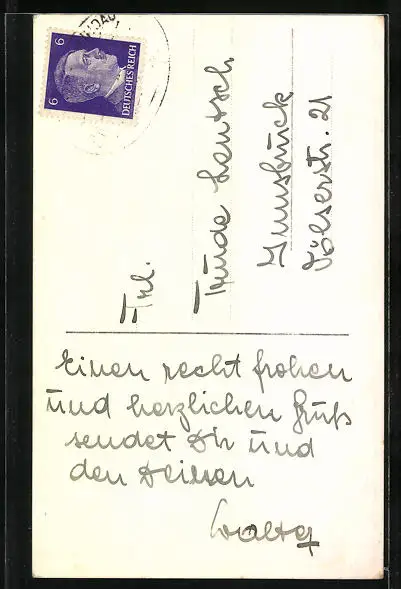 6
6
DEUTSCHES REICH
Frl.
Trude Lentsch
Innsbruck
Völserstr. 21
Einen recht frohen
und herzlichen Gruß
sendet Dir und
den Deinen
Walter